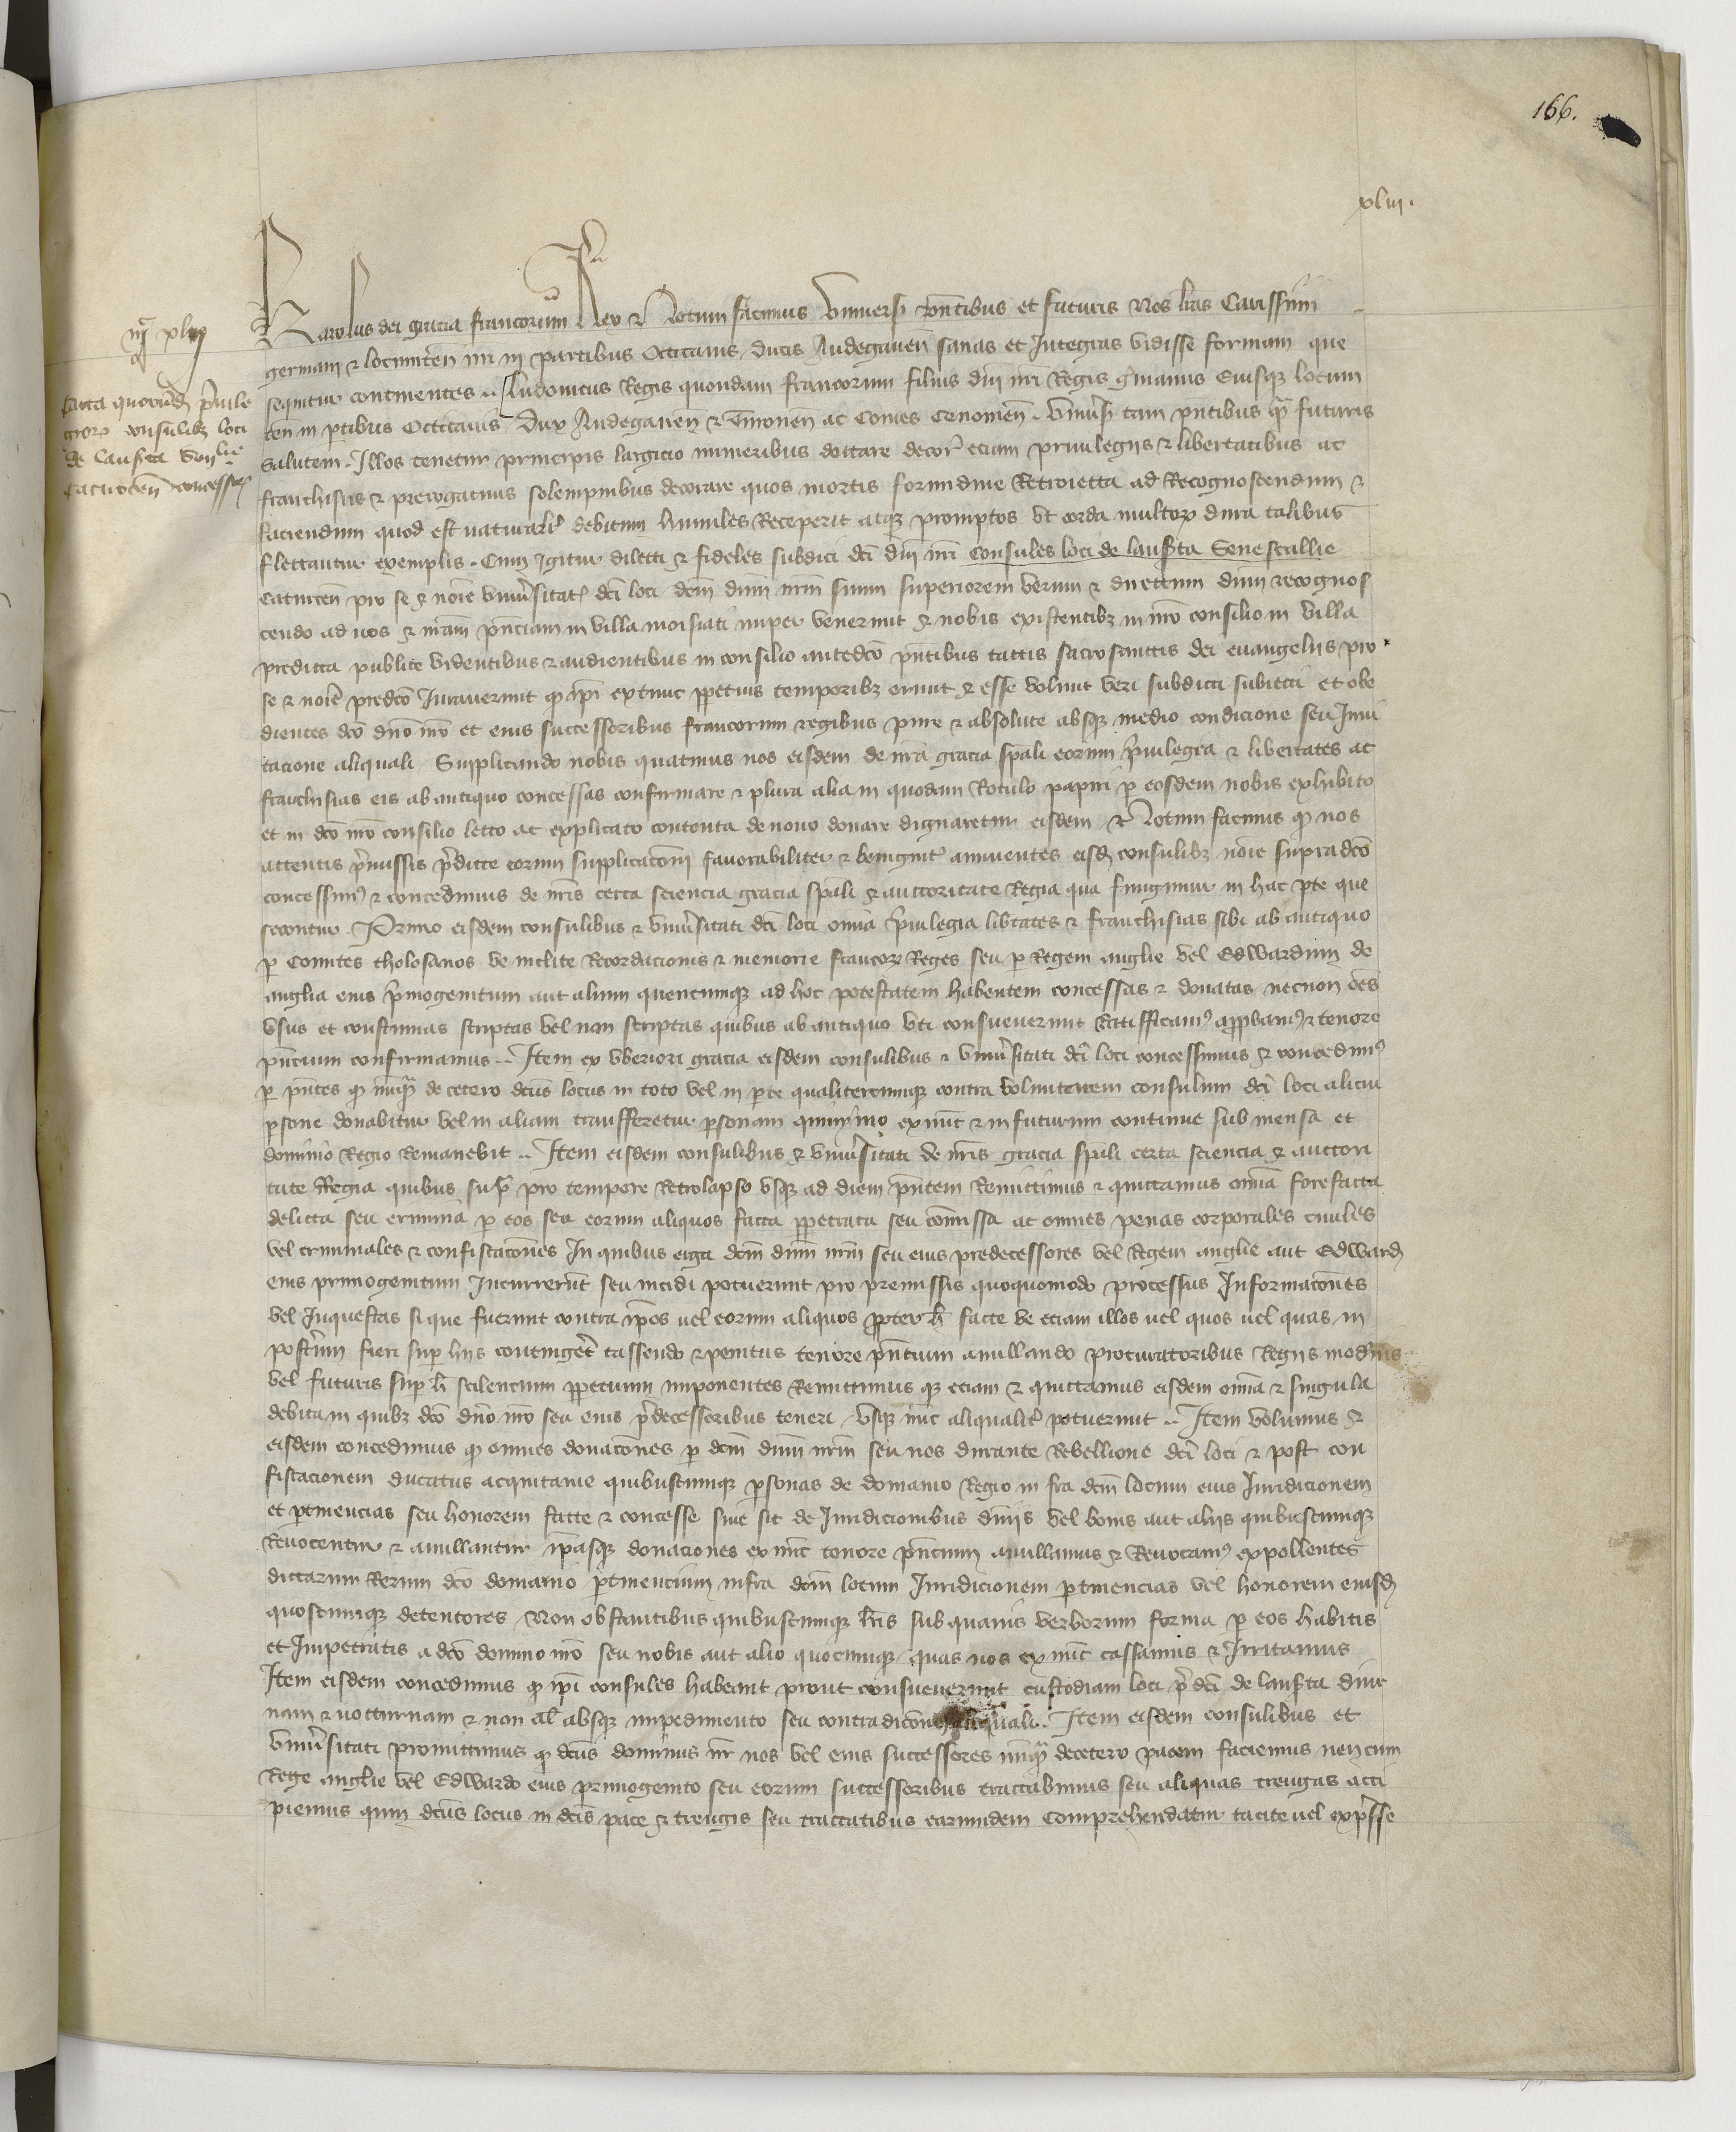 166.
xliii.
Karolus dei gracia francorum Rex &c Notum facimus Universis pñtibus et futuris Nos lras Carissimi
germani & locumteñ nri in partibus Occitanis ducis Andegaveñ sanas et Integras vidisse formam que
sequitur continentes .. Ludovicus Regis quondam francorum filius dni nri Regis germanus Eiusque locum
teñ in ptibus Occitanis Dux Andegaveñ & Turoneñ ac Comes Cenomeñ. Univsis tam pñtibus qua futuris
Salutem. Illos tenetur principis largicio muneribus dottare decor etiam privilegiis & libertatibus ac
franchisiis & prerogativis solempnibus decorare quos mortis formidine Retroiecta ad Recognoscendum &
faciendum quod est naturalr debitum humiles Receperit atque promptos ut corda multorum dura talibus
flectantur exemplis. Cum Igitur dilecti & fideles subdici dci dni nri Consules loci de lauserta Senescallie
Caturceñ pro se & noie univsitatis dci loci dcm dnm nrm suum superiorem verum & directum dnm recognos
cendo ad nos & nram pñciam in villa moisiaci nuper venerunt & nobis existentibus in nro consilio in villa
predicta publice videntibus & audientibus in consilio antedco pñtibus tactis sacrosanctis dei euangeliis pro
se & noie predco Iuraverunt quod ipi extunc ppetuis temporibus erunt & esse volunt veri subdicti subiecti et obe
dientes dco dno nro et eius successoribus francorum regibus pure & absolute absque medio condicione seu Imi
tacione aliquali Supplicando nobis quatinus nos eisdem de nra gracia spali eorum privilegia & libertates ac
franchisias eis ab antiquo concessas confirmare & plura alia in quodam Rotulo papiri p eosdem nobis exhibito
et in dco nro consilio lecto ac explicato contenta de novo donare dignaretur eisdem &c Notum facimus quod nos
attentis premissis predicte eorum supplicaconi favorabiliter & benignit annuentes eisdem consulibus noie supradco
concessimus & concedimus de nris certa sciencia gracia spali & auctoritate Regia qua fungimur in hac pte que
secuntur. Primo eisdem consulibus & univsitati dci loci omia privilegia libtates & franchisias sibi ab antiquo
p Comites tholosanos ve inclite Recordacionis & memorie francorum Reges seu p Regem anglie vel Edwardum de
anglia eius primogenitum aut alium quencumque ad hoc potestatem habentem concessas & donatas necnon oes
usus et coustumas scriptas vel non scriptas quibus ab antiquo uti consueverunt Ratifficamus appbamus & tenore
pñcium confirmamus .. Item ex uberiori gracia eisdem consulibus & univsitati dci loci concessimus & concedimus
p pñtes quod nuqua de cetero dcus locus in toto vel in pte qualitercumque contra voluntatem consulum dci loci alicui
psone donabitur vel in aliam transfferetur psonam quinymo exnunc & in futurum continue sub mensa et
dominio Regio Remanebit .. Item eisdem consulibus & univsitati de nris gracia spali certa sciencia & auctori
tate Regia quibus supra pro tempore Retrolapso usque ad diem pñtem Remittimus & quictamus omia forefacta
delicta seu crimina p eos seu eorum aliquos facta ppetrata seu comissa ac omnes penas corporales civiles
vel criminales & confiscacones In quibus erga dcm dnm nrm seu eius predecessores vel Regem anglie aut Edwardum
eius primogenitum Incurrerunt seu incidi potuerunt pro premissis quoquomodo processus Informacones
vel Inquestas si que fuerunt contra ipos vel eorum aliquos ppter h facte ve etiam illos vel quos vel quas in
posterum fieri sup hiis contingeret cassendo & penitus tenore pñcium anullando procuratoribus Regiis modernis
vel futuris sup h scilencium ppetuum imponentes Remittimus que etiam & quictamus eisdem omia & singula
debita in quibus dco dno nro seu eius predecessoribus teneri usque nuc aliqualit potuerunt .. Item volumus &
eisdem concedimus quod omnes donacones p dcm dnm nrm seu nos durante Rebellione dci loci & post con
fiscacionem ducatus acquitanie quibuscumque psonas de domanio Regio in fra dcm locum eius Iuridicionem
et ptinencias seu honorem facte & concesse sive sit de Iuridicionibus dniis vel bonis aut aliis quibuscumque
Revocentur & anullantur ipasque donaciones ex nuc tenore pñcium anullamus & Revocamus expollentes
dictarum Rerum dco domanio ptinencium infra dcm locum Iuridicionem ptinencias vel honorem eiusdem
quoscumque detentores Non obstantibus quibuscumque lris sub quavis verborum forma p eos habitis
et Impetratis a dco domino nro seu nobis aut alio quocumque quas nos ex nuc cassamus & Irritamus
Item eisdem concedimus quod ipi consules habeant prout consueverunt custodiam loci predci de lauserta diur
nam & nocturnam & non al absque impedimento seu contradicone aliquali. Item eisdem consulibus et
univsitati promittimus quod dcus dominus nr nos vel eius successores nuqua decetero pacem faciemus nencum
Rege anglie vel Edwardo eius primogenito seu eorum successoribus tractabimus seu aliquas treugas acci
piemus quin dcus locus in dcis pace & treugis seu tractatibus earumdem Comprehendatur tacite vel expresse
Carta quorumdam privile
giorum consulibus loci
de Lauserta Senlie
Caturceñ concessorum